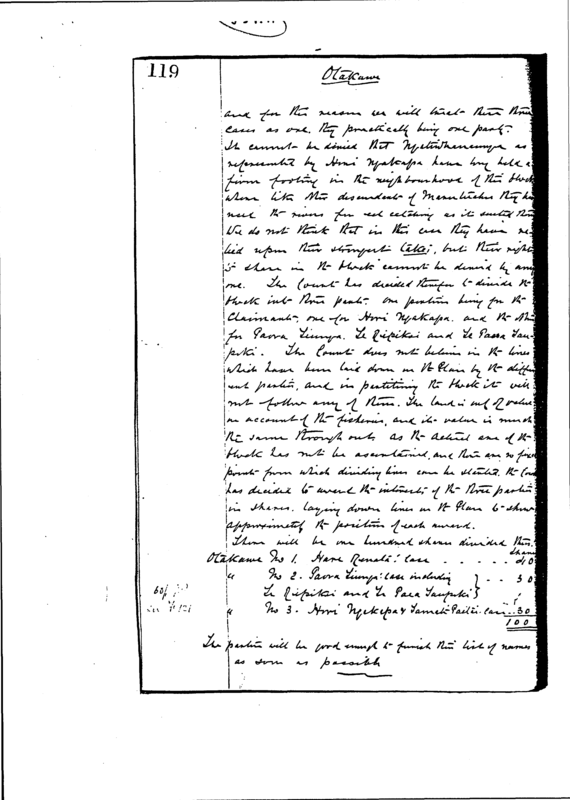 119
Otakawe
and for this reason we will treat these three
cases as one. they practically being one party.
It cannot be denied that Ngatiwhanaunga as
represented by Hori Ngakapa have long held a
firm footing in the neighbourhood of this block
where like the descendants of Marutuahu they ha
used the rivers for eel catching as it suited them
We do not think that in this case they have re
lied upon their strongest take; but their right
to share in the block cannot be denied by any
one. The Court has decided therefor to divide the
block into three parts. one portion being for the
Claimants, one for Hori Ngakapa. and the other
for Paora Tiunga. Te Ripikoi and Te Paea Tau-
. The Court does not believe in the lines
which have been laid down on the Plan by the differ
ent parties, and in partitioning the block it will
not follow any of them. The land is of value
on account of the fisheries, and its value is much
the same throughout. as the actual area of the
block has not be ascertained, and there are no fixed
points from which dividing lines can be started. the Court
has decided to award the interests of the three parties
in shares. laying down lines on the Plan to show
approximately the position of each award.
There will be one hundred shares divided thus.
Shares
Otakawe No 1. Hare Renata's Case - - - - 40
" No 2. Paora Tiunga's Case including } - - 30
Te Ripikoi and Te Paea }
" No 3. Hori Ngakapa & case .. 30
100
The parties will be good enough to furnish their list of names
as soon as possible